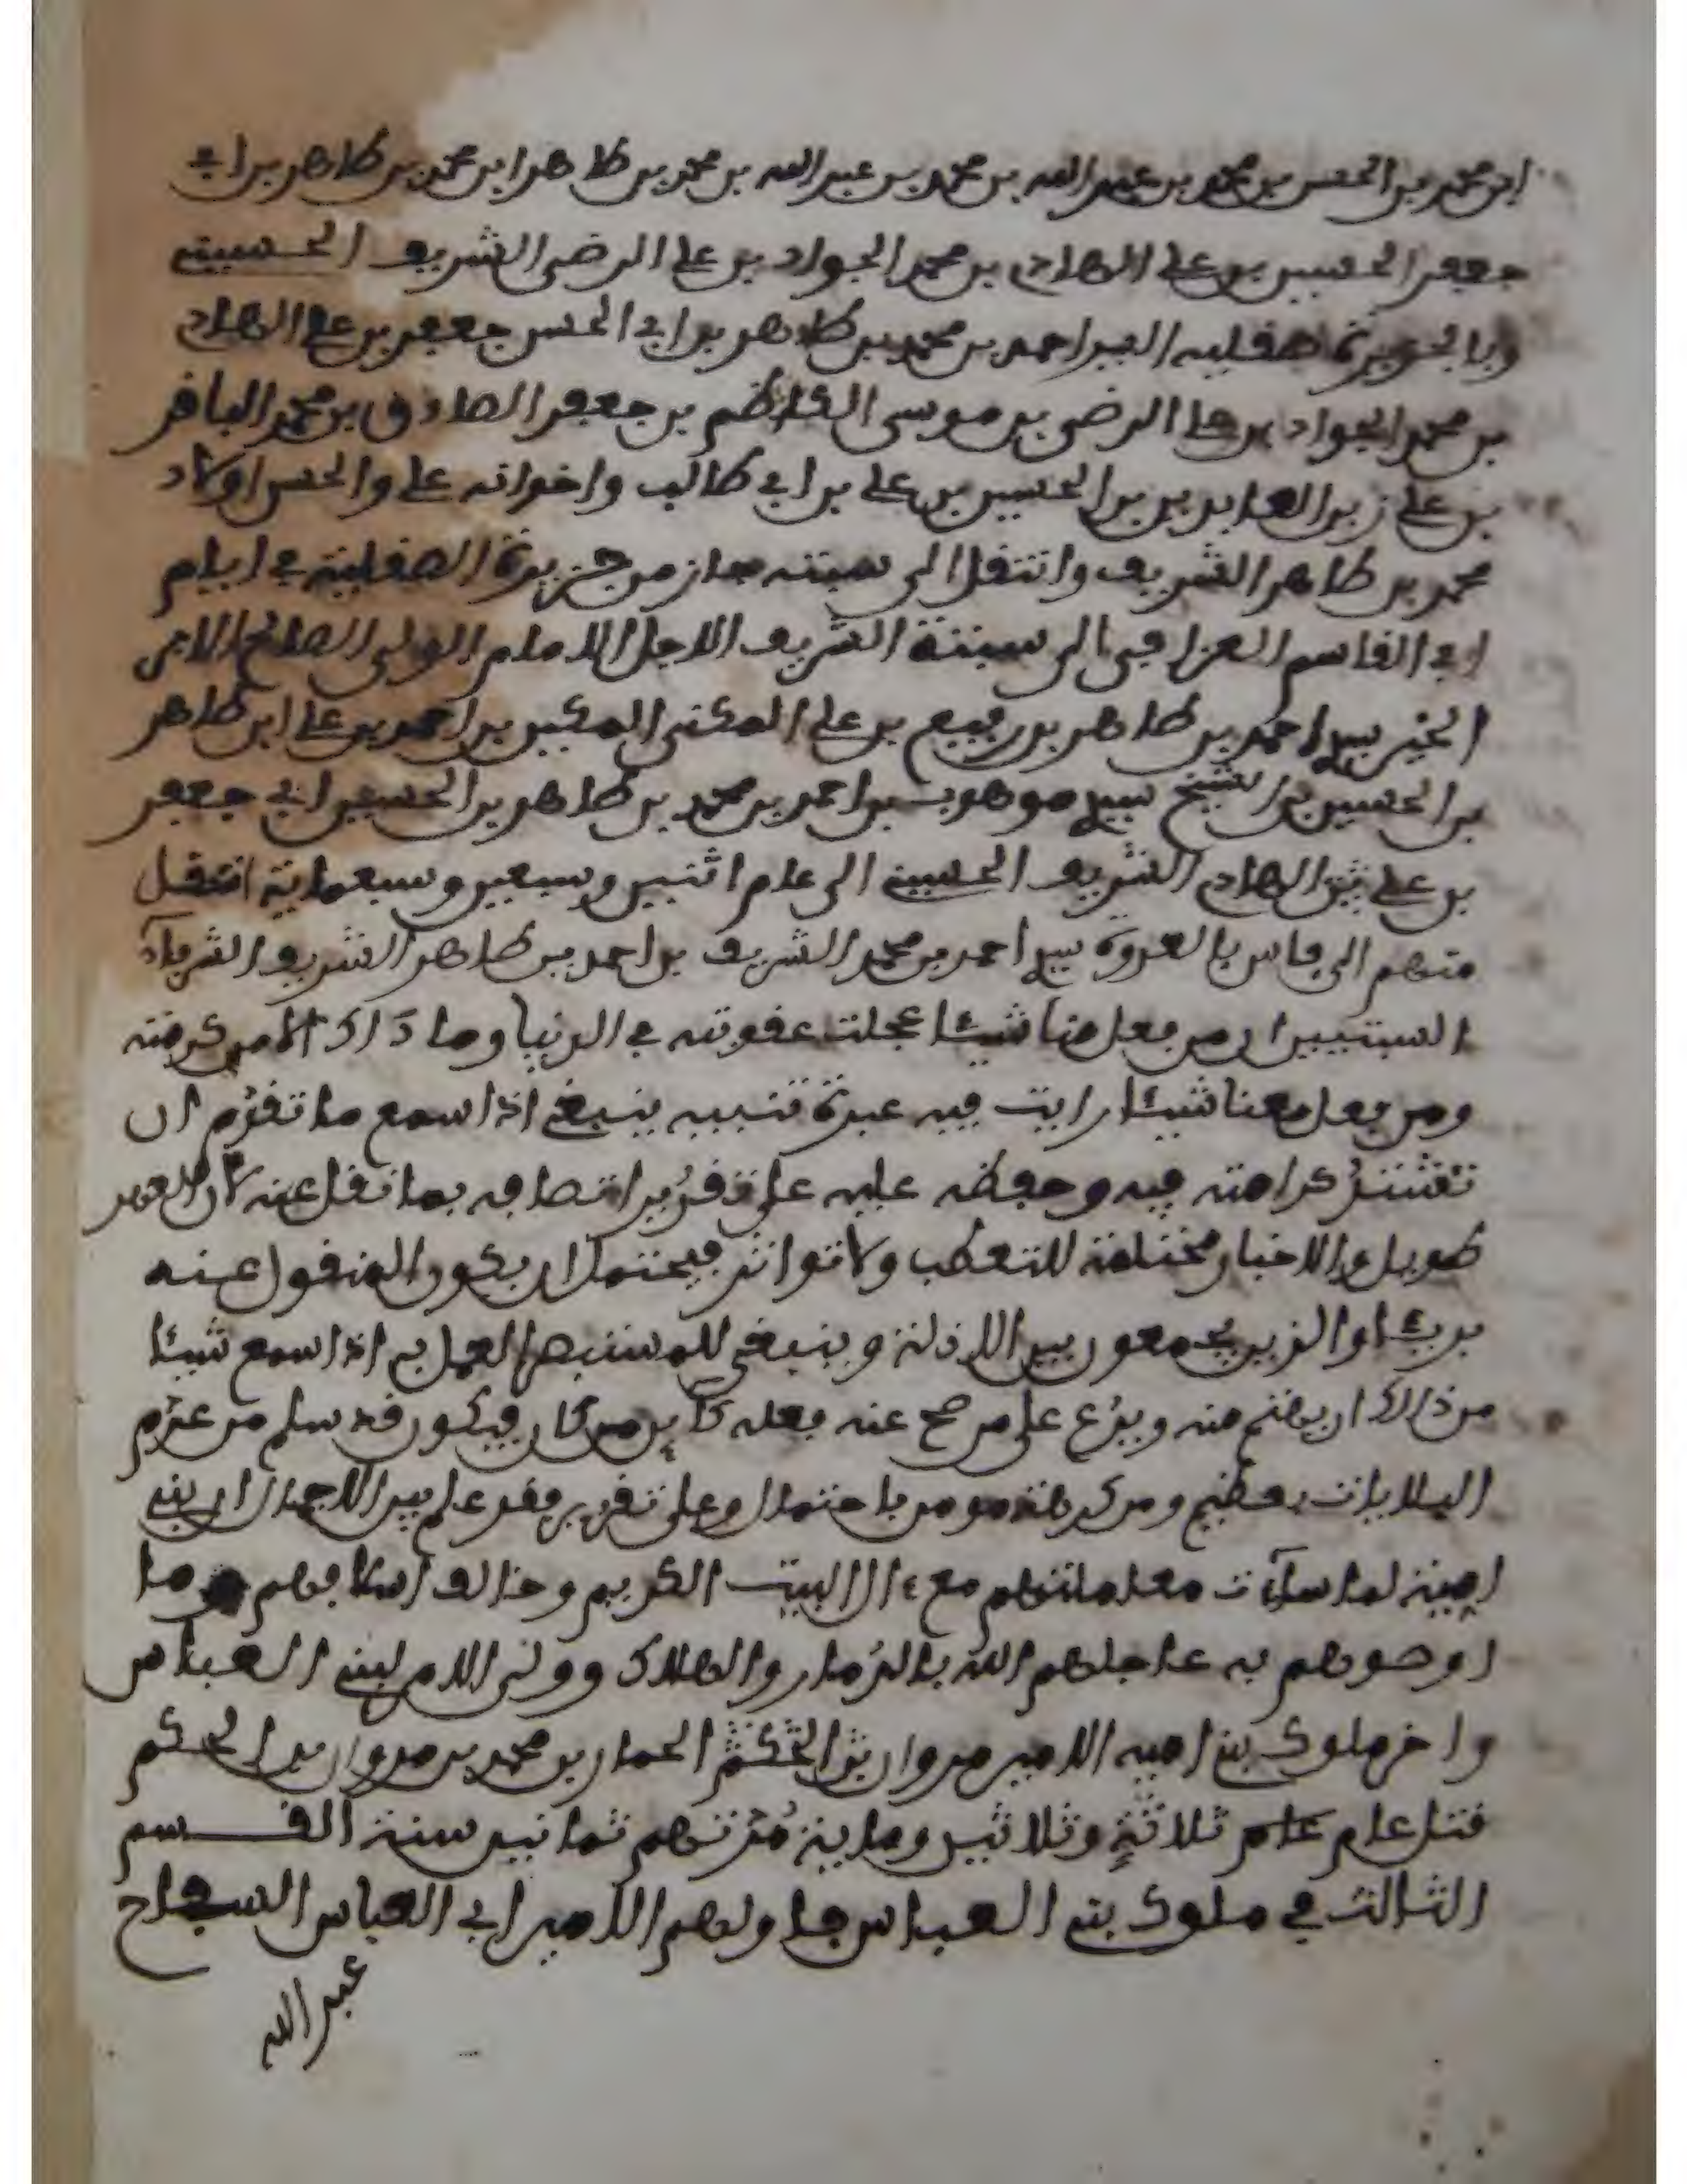 ابن محمد بن الحسن بن محمد بن عبد الله بن محمد بن عبد الله بن محمد بن طاهر ابن محمد بن طاهر بن ابي
جعفر الحسين بن علي الهادي بن محمد الجواد بن علي الرضى الشريف الحسيني
صقلية احمد بن محمد بن طاهر بن ابي الحسن جعفر بن علي الهادي
بن محمد الجواد بن علي الرضى بن موسى الكاظم بن جعفر الصادق بن محمد الباقر
بن علي زين العابدين بن الحسين بن علي بن ابي طالب واخوانه علي والحسن اولاد
محمد بن طاهر الشريف وانتقل الى سبتة من جزيرة الصقلية في ايام
ابي القاسم العزافي الى سبتة الشريف الاجل الامام الولي الصالح
الخير سيدي احمد بن طاهر بن رفيع بن علي المكنى المكين بن احمد بن علي ابن طاهر
بن الحسين بن الشيخ سيدي موهوب بن احمد بن محمد بن طاهر بن الحسين ابي جعفر
بن علي بن الهادي الشريف الحسيني الى عام اثنين وسبعين وسبعماية انتقل
منهم الى فاس بالعدوة سيدي احمد بن محمد الشريف بن احمد بن طاهر الشريف الشرفاء
السبتيين ان من فعل منا شيئا عجلت عقوبته في الدنيا وما ذاك الا من كرمته
ومن فعل معنا شيئا رايت فيه عبرة تنبيه ينبغي اذا سمع ما تقدم ان
تشتد كراهته فيه وحفظه عليه على تقدير اتصافه بما نقل عنه لان العهد
طويل والاخبار مختلفة للتعطب ولا تواتر فيحتمل ان يكون المنقول عنه
بريئا والذين يجمعون بين الادلة وينبغي للمستبصر العمل به اذا سمع شيئا
من ذالك ان يصفح منه ويدع على من صح عنه فعله كاين من كان فيكون قد سلم من عدم
البلايات وعلى تقدير فقد علم بين الاجمال ان بني
امية لما ساءت معاملتهم مع ءال البيت الكريم وخالف اسلافهم وما
اوصوهم به عاجلهم الله بالدمار والهلاك وولى الامر لبني العباس
واخر ملوك بني امية الامير مروان بن الحكم الحمار بن محمد بن مروان بن الحكم
قتل عام عام ثلاثة وثلاثين وماية مدتهم ثمانين سنة القسم
الثالث في ملوك بني العباس فاولهم الامير ابي العباس السفاح
عبد الله